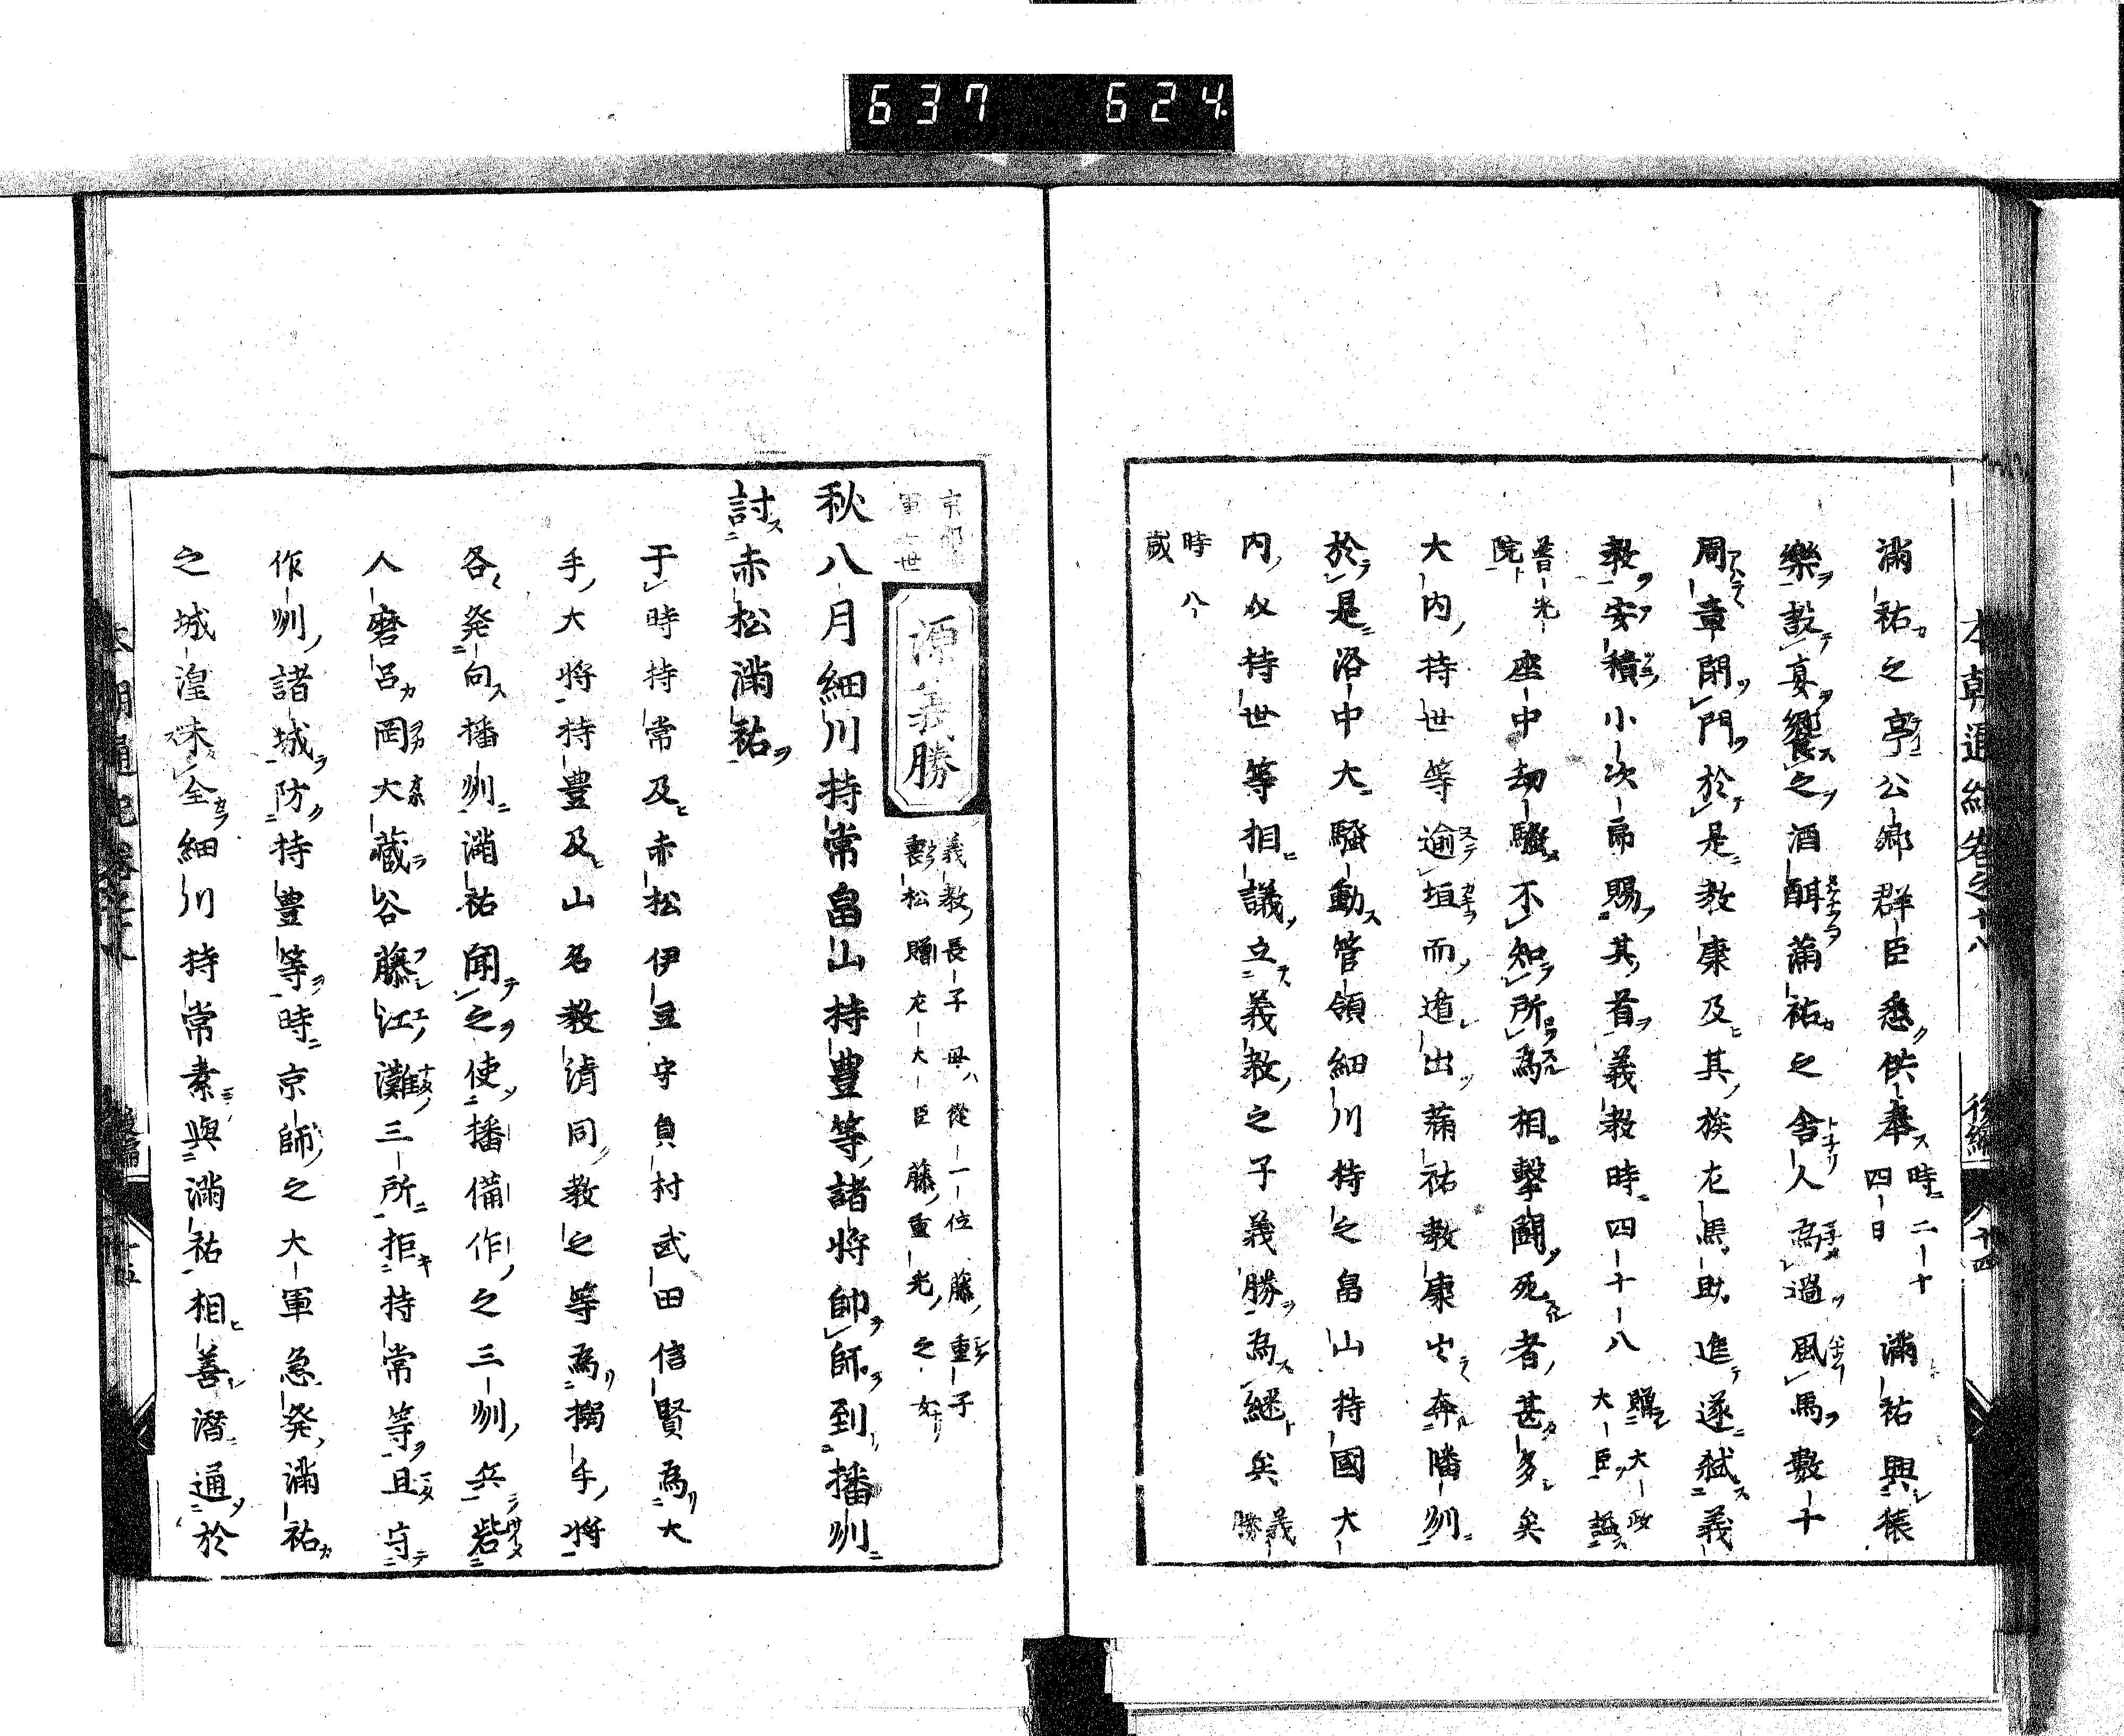 637 624
本朝通紀卷之十八 後編 十四
滿祐之亭公卿群臣悉供奉時二十四日滿祐興猿
樂設宴饗之酒酣滿祐之舍人為過風馬數十
周章閉門於是教康及其族左馬助進遂弑義
教安積小次郎賜其首義教時四十八贈大政大臣謚
普光院座中劫騷不知所為相擊鬪死者甚多矣
大內持世等逾垣而遁出滿祐教康出奔播州
於是洛中大騷動管領細川持之畠山持國大
內以持世等相議立義教之子義勝為継矣義勝
時八歲
京都 軍 世
源義勝
義教長子母從一位藤重子
裏松贈左大臣藤重光之女
秋八月細川持常畠山持豊等諸将帥師到播州
討赤松滿祐
于時持常及赤松伊豆守貞村武田信賢為大
手大将持豊及山名教清同教之等為搦手将
各発向播州滿祐聞之使播備作之三州兵砦
人磨呂岡大藏谷藤江灘三所拒持常等且守
作州諸城防持豊等時京師之大軍急発滿祐
之城湟未全細川持常素與滿祐相善潛通於
本朝通紀卷之十八 後編 十五